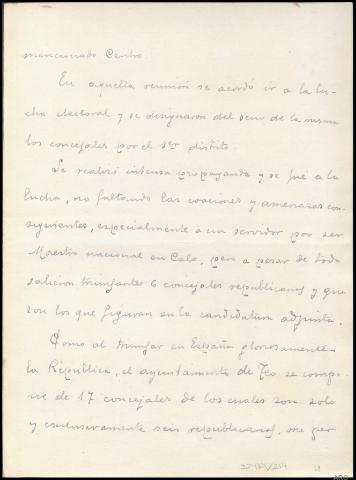 mencionado Centro.
En aquella reunión se acordó ir a la lu-
cha electoral y se designaron del seno de la misma
los concejales por el 1er distrito.
Se realizó intensa propaganda y se fué a la
lucha, no faltando las coaciones y amenazas con-
siguientes, especialmente a un servidor por ser
Maestro nacional en Calo, pero a pesar de todo
salieron triunfantes 6 concejales republicanos y que
son los que figuran en la candidatura adjunta.
Como al triunfar en España gloriosamente
la República, el ayuntamiento de Teo se compo-
ne de 17 concejales de los cuales son solo
y exclusivamente seis republicanos, me per
4